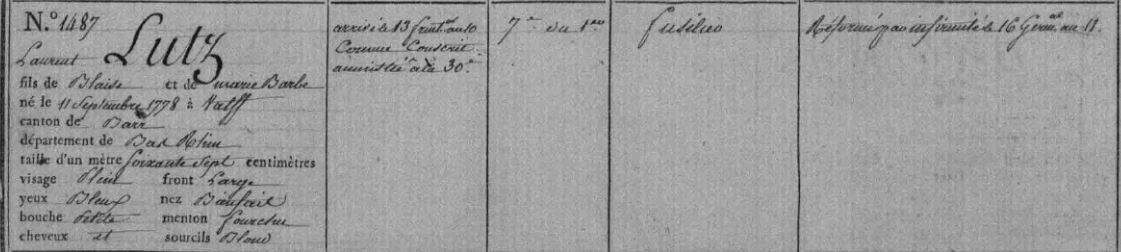 N.º 1487
Lutz
Laurent
fils de Blaise et de marie Barbe
né le 11 Septembre 1778 à Valff
canton de Barr
département de Bas Rhin
taille d'un mètre Soixante Sept centimètres
visage Plein front Large
yeux Bleux nez Bienfait
bouche Petite menton fourchu
cheveux et sourcils Blond
arrivé le 13 fruct.or an 10
Comme Conscrit
amnistié
30.e
7.e du 1.er
fusilier
Réformé pour infirmité le 16 Germ.al an 11.